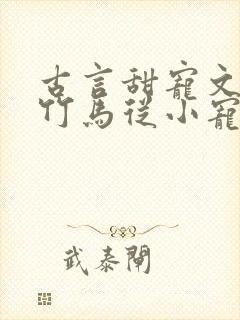 古言甜寵文
竹馬從小寵
武泰閘